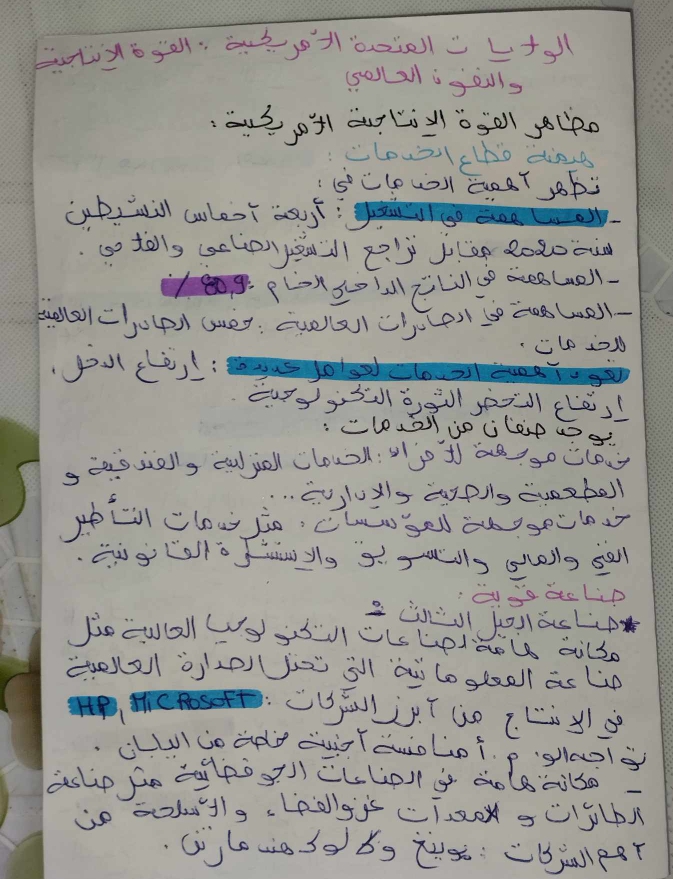 الولايات المتحدة الأمريكية : القوة الإنتاجية
والنفوذ العالمي
مظاهر القوة الإنتاجية الأمريكية :
هيمنة قطاع الخدمات :
تظهر أهمية الخدمات في :
- المساهمة في التشغيل : أربعة أخماس النشيطين
سنة 2020 مقابل تراجع التشغيل الصناعي والفلاحي .
- المساهمة في الناتج الداخلي الخام : 80,9 %
- المساهمة في الصادرات العالمية : خمس الصادرات العالمية
للخدمات .
تعود أهمية الخدمات لعوامل عديدة : إرتفاع الدخل ،
إرتفاع التحضر الثورة التكنولوجية .
يوجد صنفان من الخدمات :
خدمات موجهة للأفراد : الخدمات المنزلية والفندقية و
المطعمية والصحية والإدارية ...
خدمات موجهة للمؤسسات : مثل خدمات التأطير
الفني والمالي والتسويق والإستشارة القانونية .
صناعة قوية :
* صناعة الجيل الثالث :
مكانة هامة لصناعات التكنولوجيا العالية مثل
صناعة المعلوماتية التي تحتل الصدارة العالمية
في الانتاج من أبرز الشركات : HP , MiCRosoFT
تواجه الو. م. أ منافسة أجنبية خاصة من اليابان .
- مكانة هامة في الصناعات الجوفضائية مثل صناعة
الطائرات و معدات غزو الفضاء والأسلحة من
أهم الشركات : بوينغ و لوكهيد مارتن .